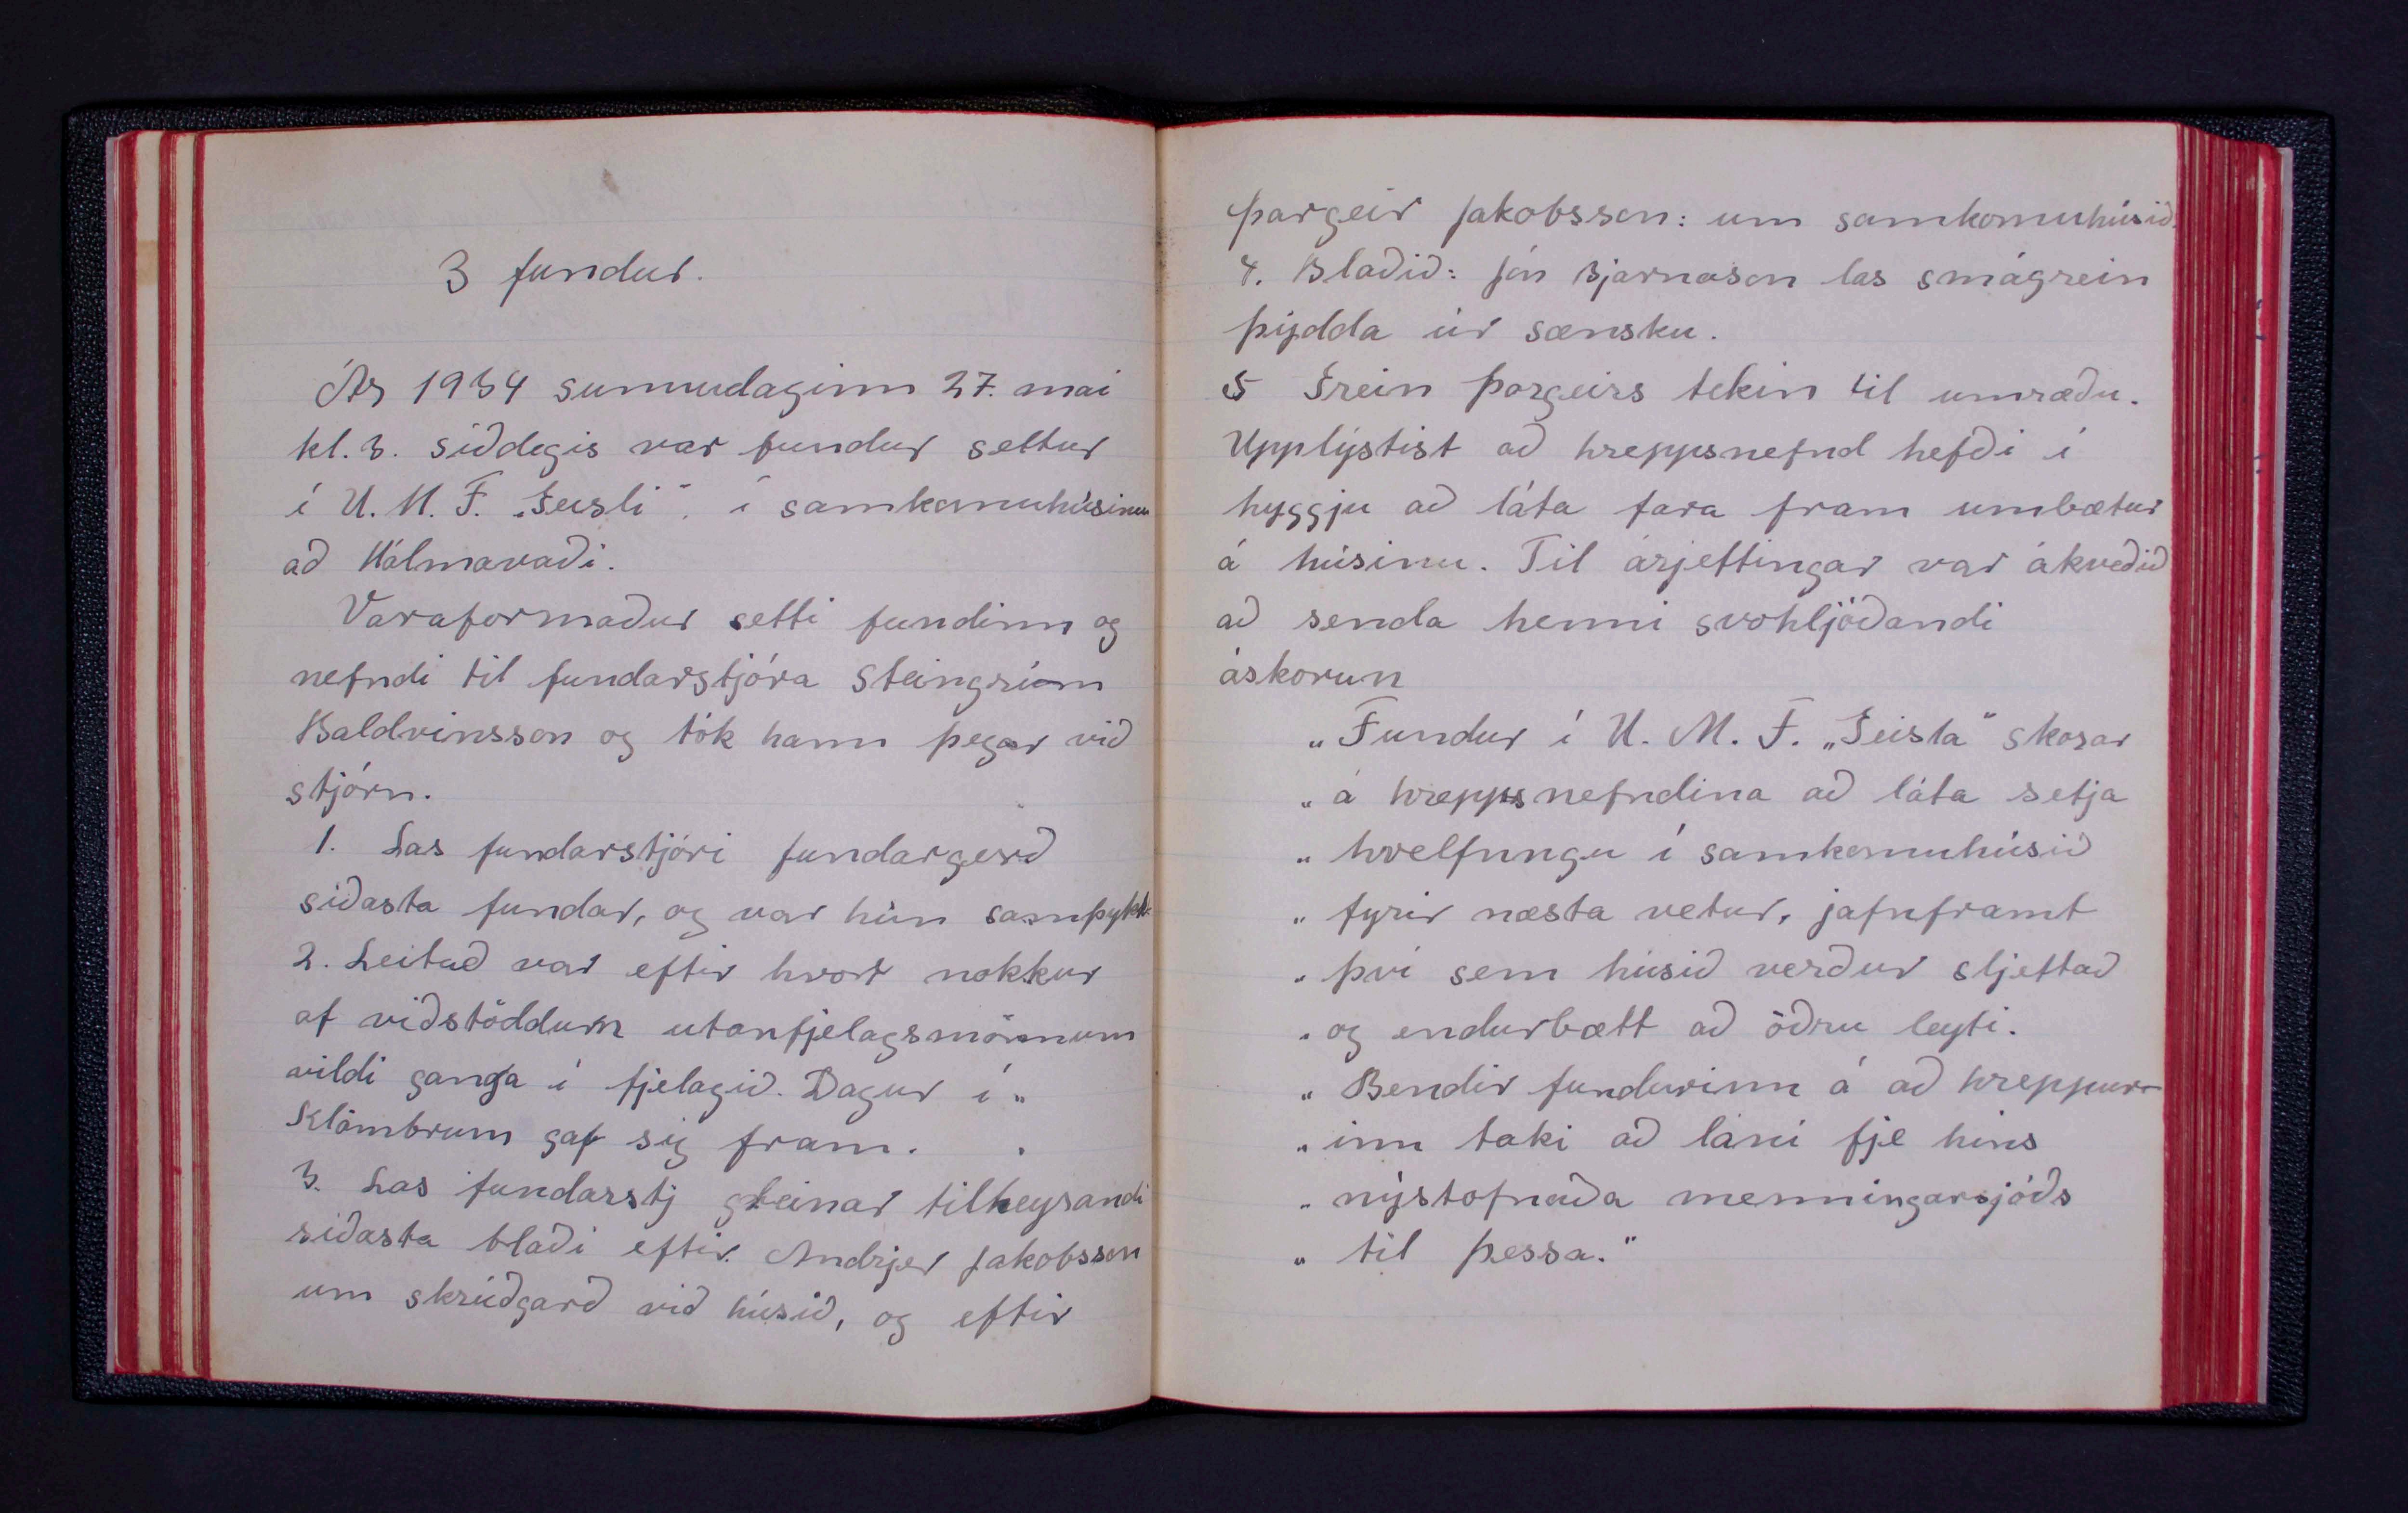 3 fundur.
Ár 1934 sunnudaginn 27. maí
kl. 3. síðdegis var fundur settur
í U. M. F. „Geisli". í samkomuhúsinu
að Hólmavaði.
Varaformaður setti fundinn og
nefndi til fundarstjóra Steingrím
Baldvinsson og tók hann þegar við
stjórn.
1. Las fundarstjóri fundargerð
síðasta fundar, og var hún samþykkt.
2. Leitað var eftir hvort nokkur
af viðstöddum utanfjelagsmönnum
vildi ganga í fjelagið. Dagur í „
Klömbrum gaf sig fram.
3. Las fundarstj greinar tilheyrandi
síðasta blaði eftir. Andrjer Jakobsson
um skrúðgarð við húsið, og eftir
Þorgeir Jakobsson: um samkomuhúsið.
4. Blaðið: Jón Bjarnason las smágrein
þýdda úr sænsku.
5 Grein Þorgeirs tekin til umræðu.
Upplýstist að hreppsnefnd hefði í
hyggju að láta fara fram umbætur
á húsinu. Til árjettingar var ákveðið
að senda henni svohljóðandi
áskorun
„Fundur í U. M. F. „Geisla" skorar
„ á hreppsnefndina að láta setja
„ hvelfungu í samkomuhúsið
„ fyrir næsta vetur, jafnframt
„ því sem húsið verður sljettað
„ og endurbætt að öðru leyti.
„ Bendir fundurinn á að hreppur-
„ inn taki að láni fje hins
„ nýstofnaða menningarsjóðs
„ til þessa."